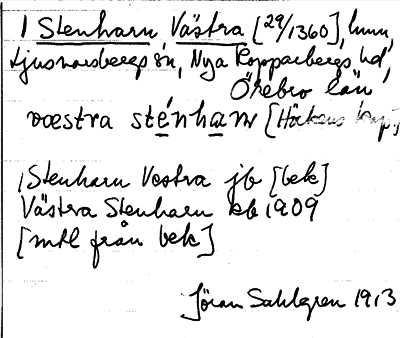 1 Stenharn Västra [29/1360], hmn,
Ljusnarsbergs sn, Nya Kopparbergs hd,
Örebro län
væstra sténhar [Härkens
1 Stenharn Vestra jb [bek]
Västra Stenharn kb 1909
[mtl från bek]
Jöran Sahlgren 1913